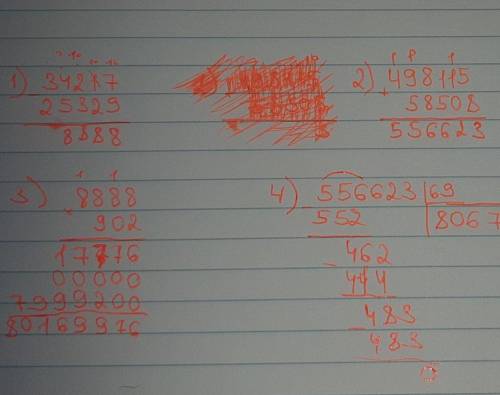 1) 34217
- 25329
8888
2) 498115
+ 58508
556623
3) 8888
× 902
17776
00000
7999200
80169976
4) 556623 | 69
- 552 | 8067
- 462
414
- 483
483
0